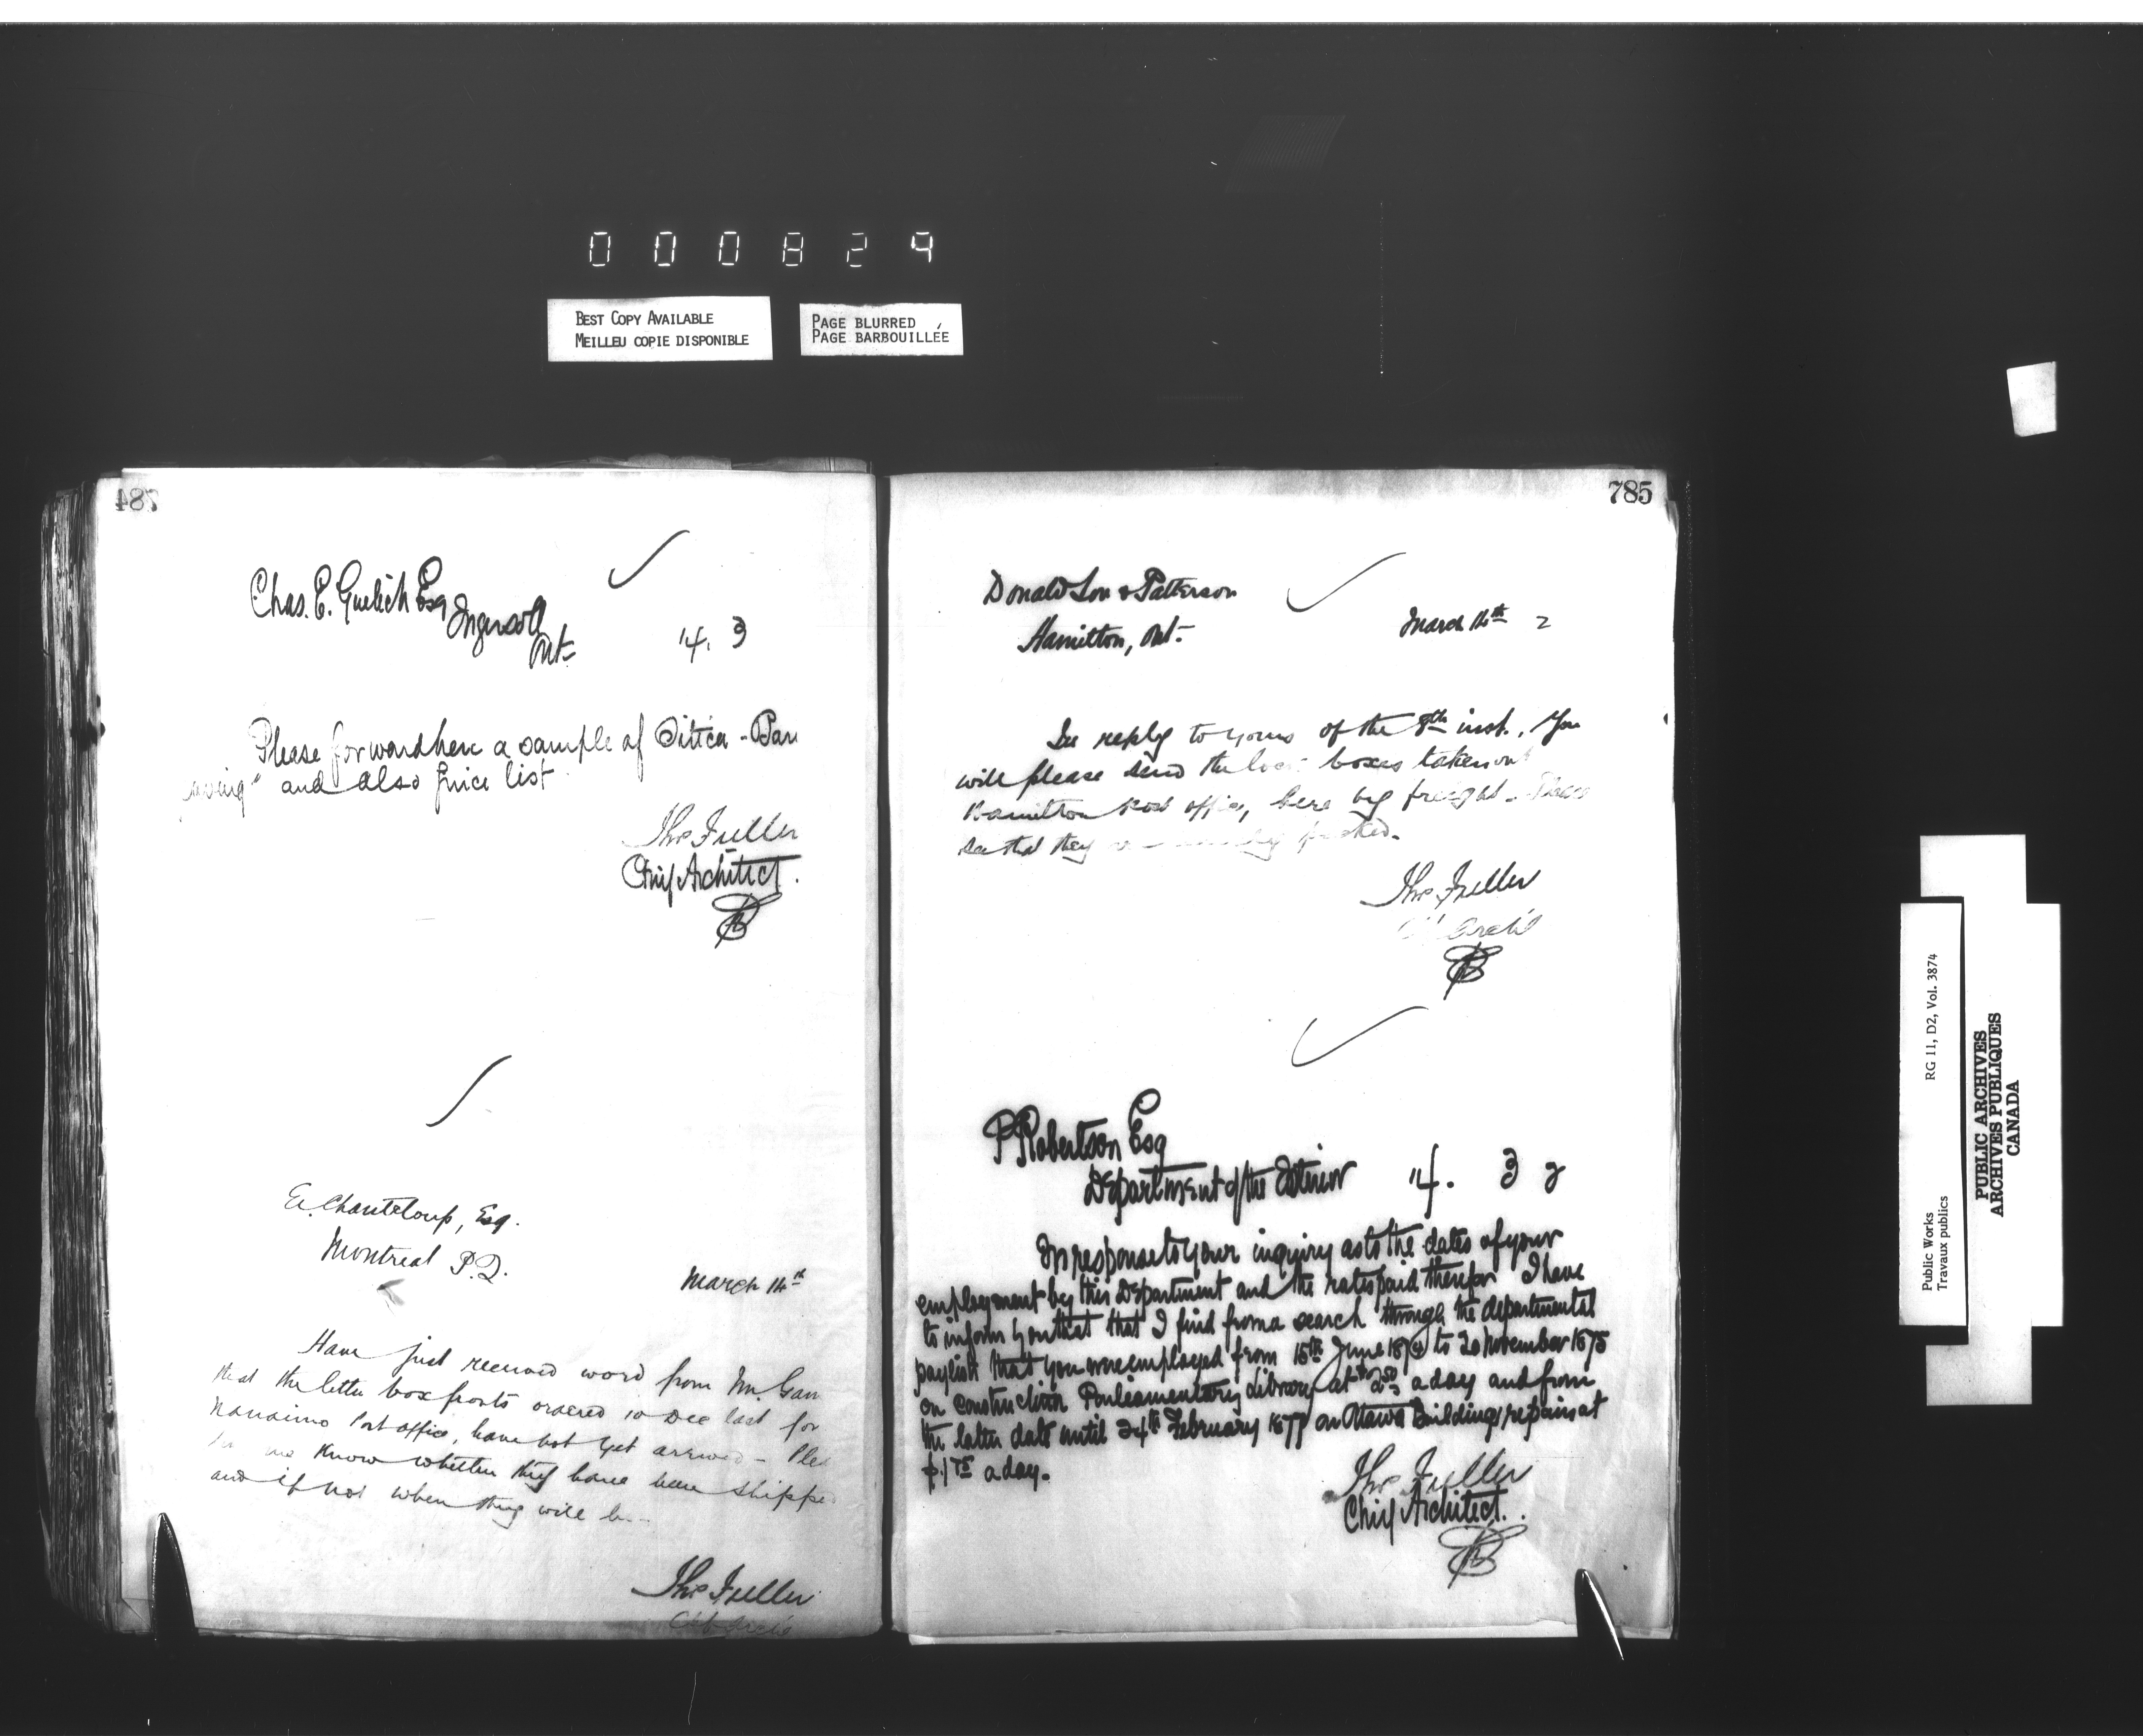 000829
BEST COPY AVAILABLE
MEILLEU COPIE DISPONIBLE
PAGE BLURRED
PAGE BARBOUILLÉE
784
Chas. E. Guelich Esq
Ingersoll
Ont
14. 3
Please forward here a sample of
and also price list
Thos Fuller
Chief Architect.
E. Chanteloup, Esq.
Montreal P.Q.
March 14th
Have just received word from Mr.
that the letter box fronts ordered 10 Dec last for
Nanaimo Post office, have not yet arrived -
me know whether they have been shipped
and if not when they will
Thos Fuller
785
Donald Son & Patterson
Hamilton, Ont.
March 14th 2
In reply to yours of the 8th inst., you
will please send the boxes taken out
Hamilton Post office, here by freight.
see that they packed.
Thos Fuller
Archt
P Robertson Esq
Department of the Interior
14. 3 2
In response to your inquiry as to the dates of your
employment by this Department and the rates paid therefor I have
to inform you that that I find from a search through the departmental
paylists that you were employed from 15th June to 20 November 1875
on construction Parliamentary Library at $2.50 a day and from
the latter date until 24th February 1877 on Ottawa Buildings repairs at
$1.75 a day.
Thos Fuller
Chief Architect.
Public Works
Travaux publics
RG 11, D2, Vol. 3874
PUBLIC ARCHIVES
ARCHIVES PUBLIQUES
CANADA